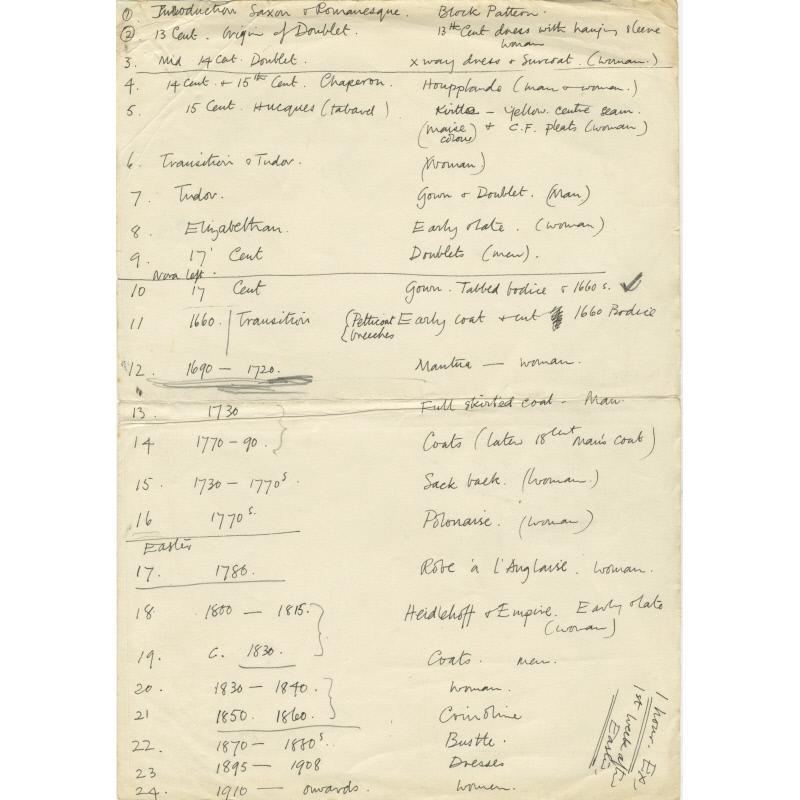 ① Introduction Saxon & Romanesque. Block Pattern.
② 13 Cent. Origin of Doublet. 13th Cent dress with hanging sleeve
woman
3. Mid 14 Cent. Doublet. x way dress & Surcoat. (woman.)
4. 14 Cent. + 15th Cent. Chaperon. Houpplande (man & woman.)
5 15 Cent. Hucques (tabard) Kirtle – Yellow. centre seam.
(maise colour) + C.F. pleats (woman)
6. Transition & Tudor. (Woman)
7. Tudor. Gown & Doublet. (Man)
8 Elizabethan. Early & late. (woman)
9. 17 Cent Doublets (men).
Nora left.
10 17 Cent Gown. Tabbed bodice & 1660s. ✓
11 1660. Transition {Petticoat breeches Early coat & cut 1660 Bodice
12. 1690 – 1720. Mantua — woman.
13. 1730 Full skirted coat – Man.
14 1770 – 90. Coats (later 18 cent man's coat)
15. 1730 – 1770s. Sack back. (Woman.)
16 1770s. Polonaise. (woman)
Easter
17. 1780. Robe à l'Anglaise. Woman.
18 1800 – 1815. Heidlehoff & Empire. Early & late
(woman)
19. C. 1830. Coats. men.
20. 1830 – 1840. Woman.
21 1850. 1860. Crinoline
22. 1870 – 1880s. Bustle.
23 1895 – 1908 Dresses
24. 1910 — onwards. Women.
1 hour. Ex
1st week after
Easter